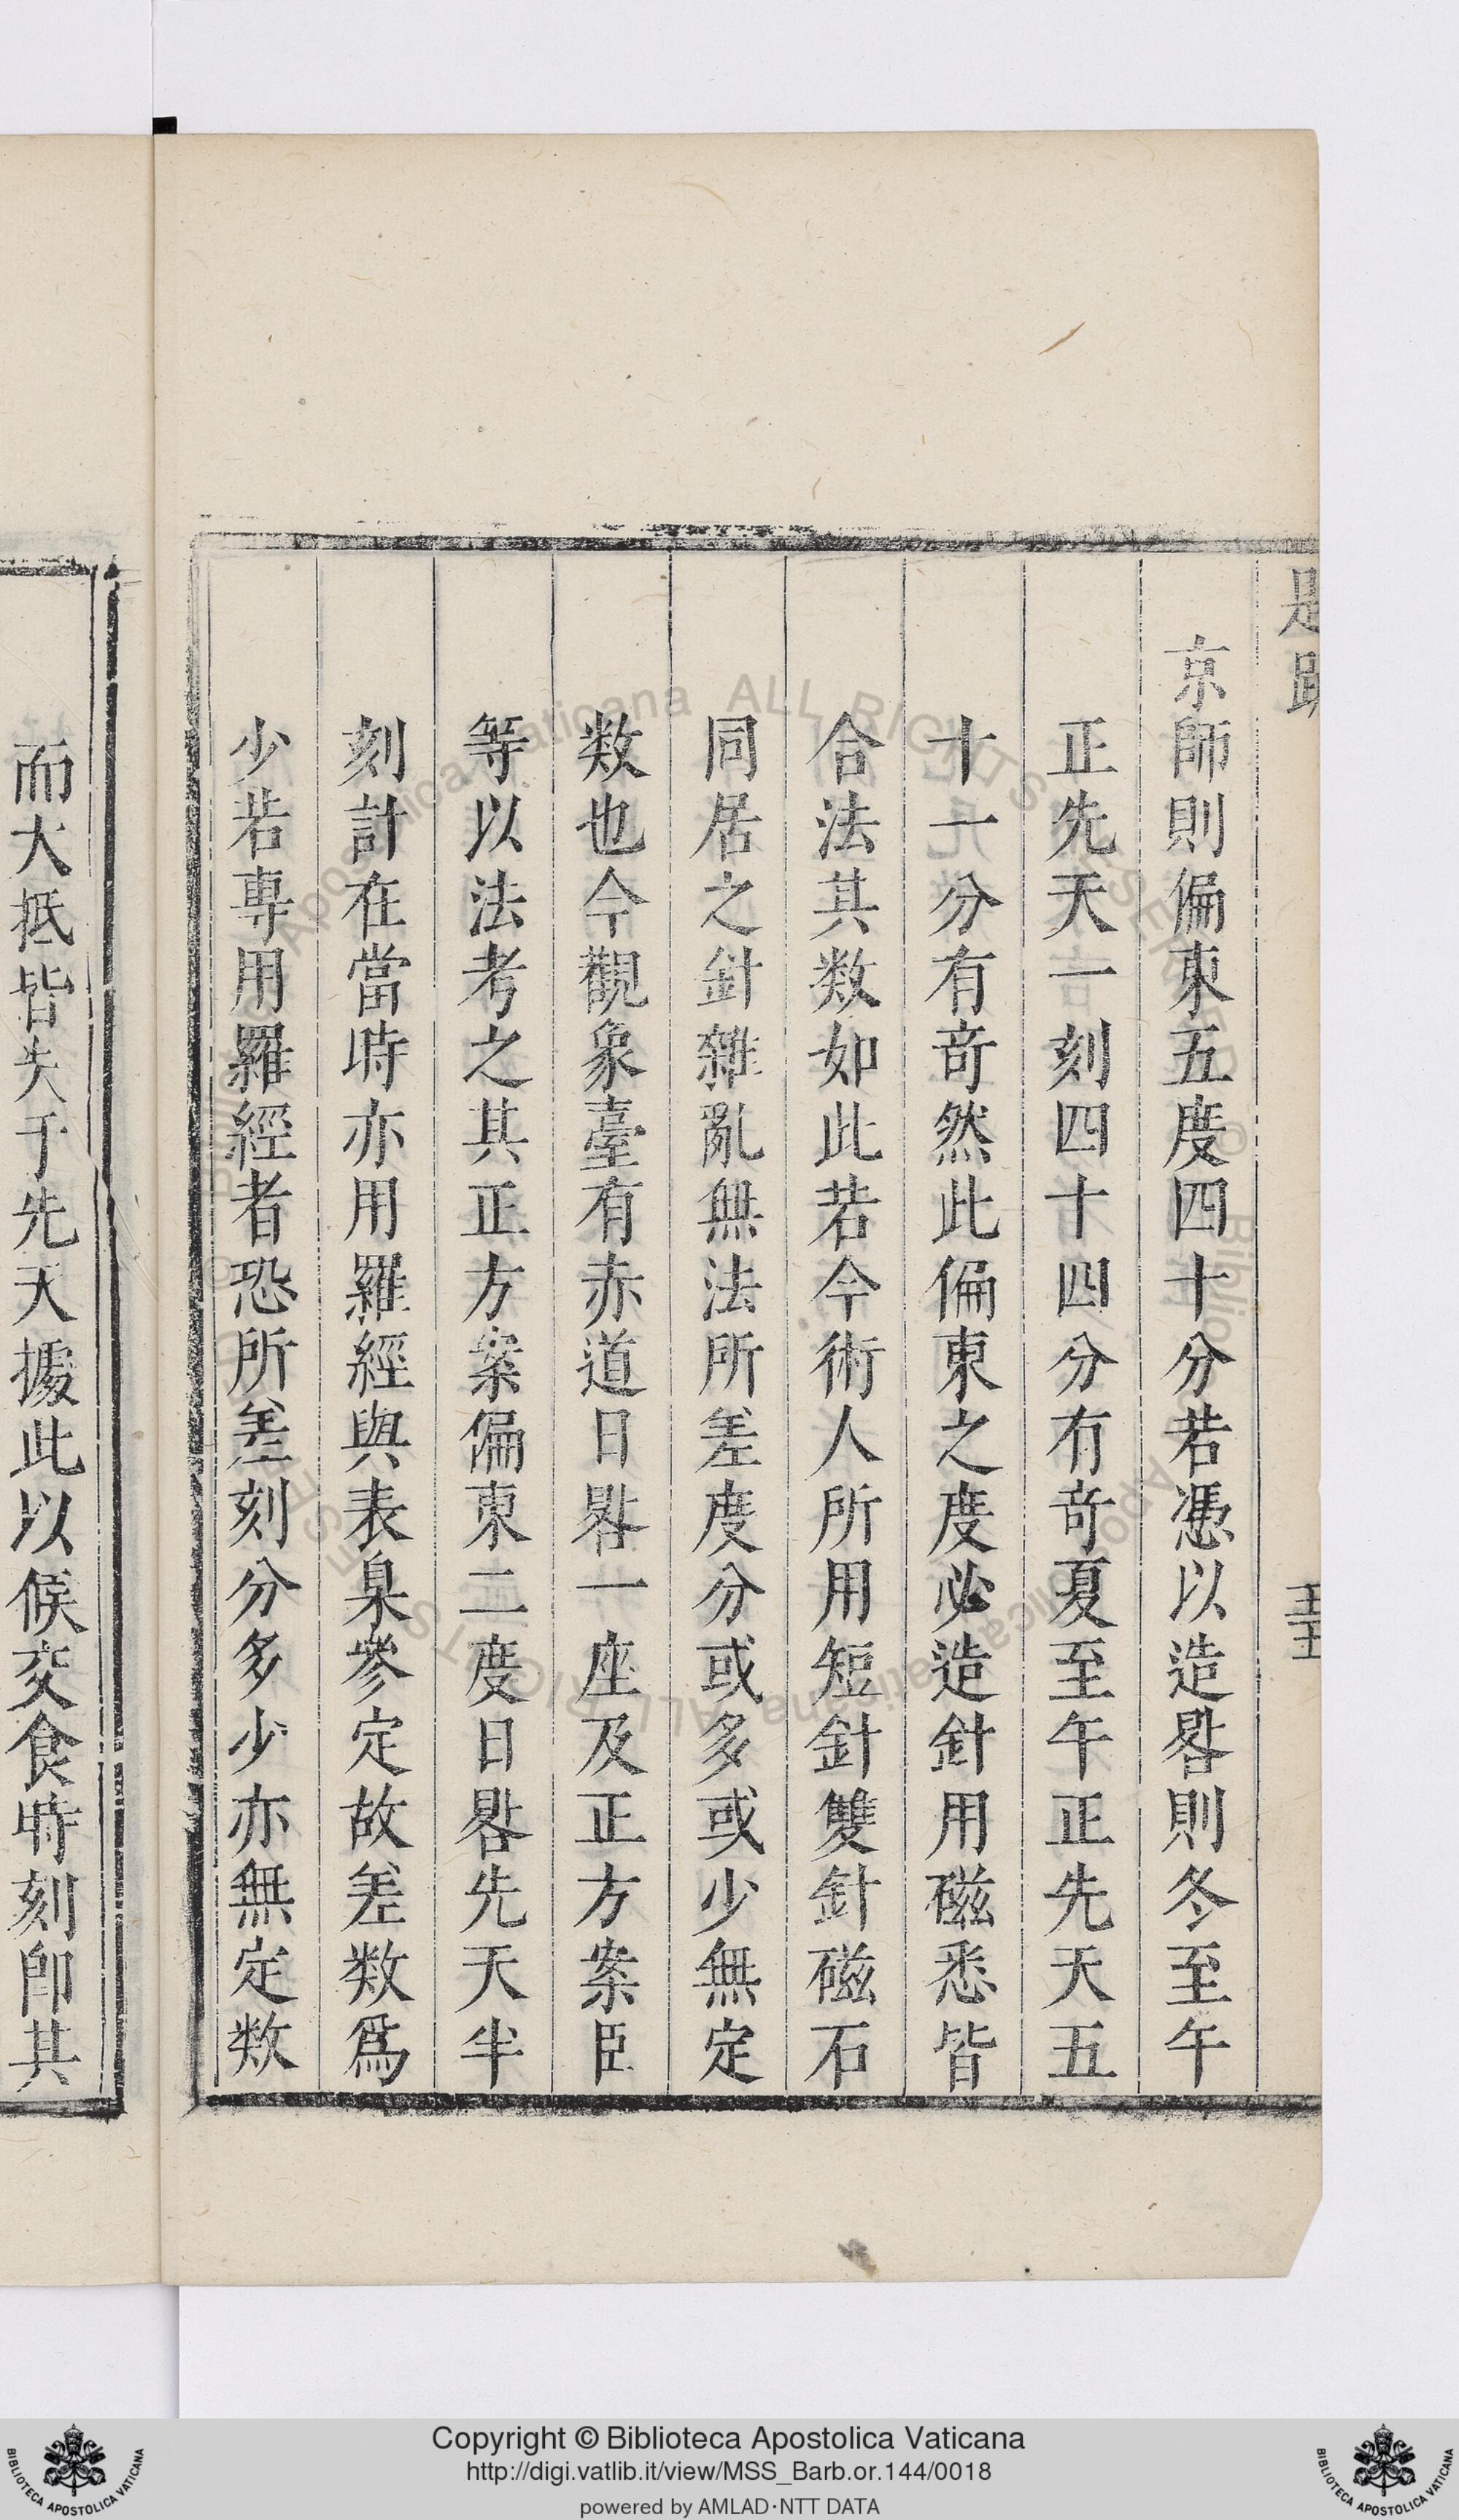 京師則偏東五度四十分若憑以造晷則冬至午
正先天一刻四十四分有奇夏至午正先天五
十一分有奇然此偏東之度必造針用磁悉皆
合法其数如此若今術人所用短針雙針磁石
同居之針雜亂無法所差度分或多或少無定
数也今觀象臺有赤道日晷一座及正方案臣
等以法考之其正方案偏東二度日晷先天半
刻計在當時亦用羅經與表臬參定故差数爲
少若專用羅經者恐所差刻分多少亦無定数
而大抵皆失于先天據此以候交食時刻卽其
Copyright © Biblioteca Apostolica Vaticana
http://digi.vatlib.it/view/MSS_Barb.or.144/0018
powered by AMLAD·NTT DATA
BIBLIOTECA APOSTOLICA VATICANA
BIBLIOTECA APOSTOLICA VATICANA